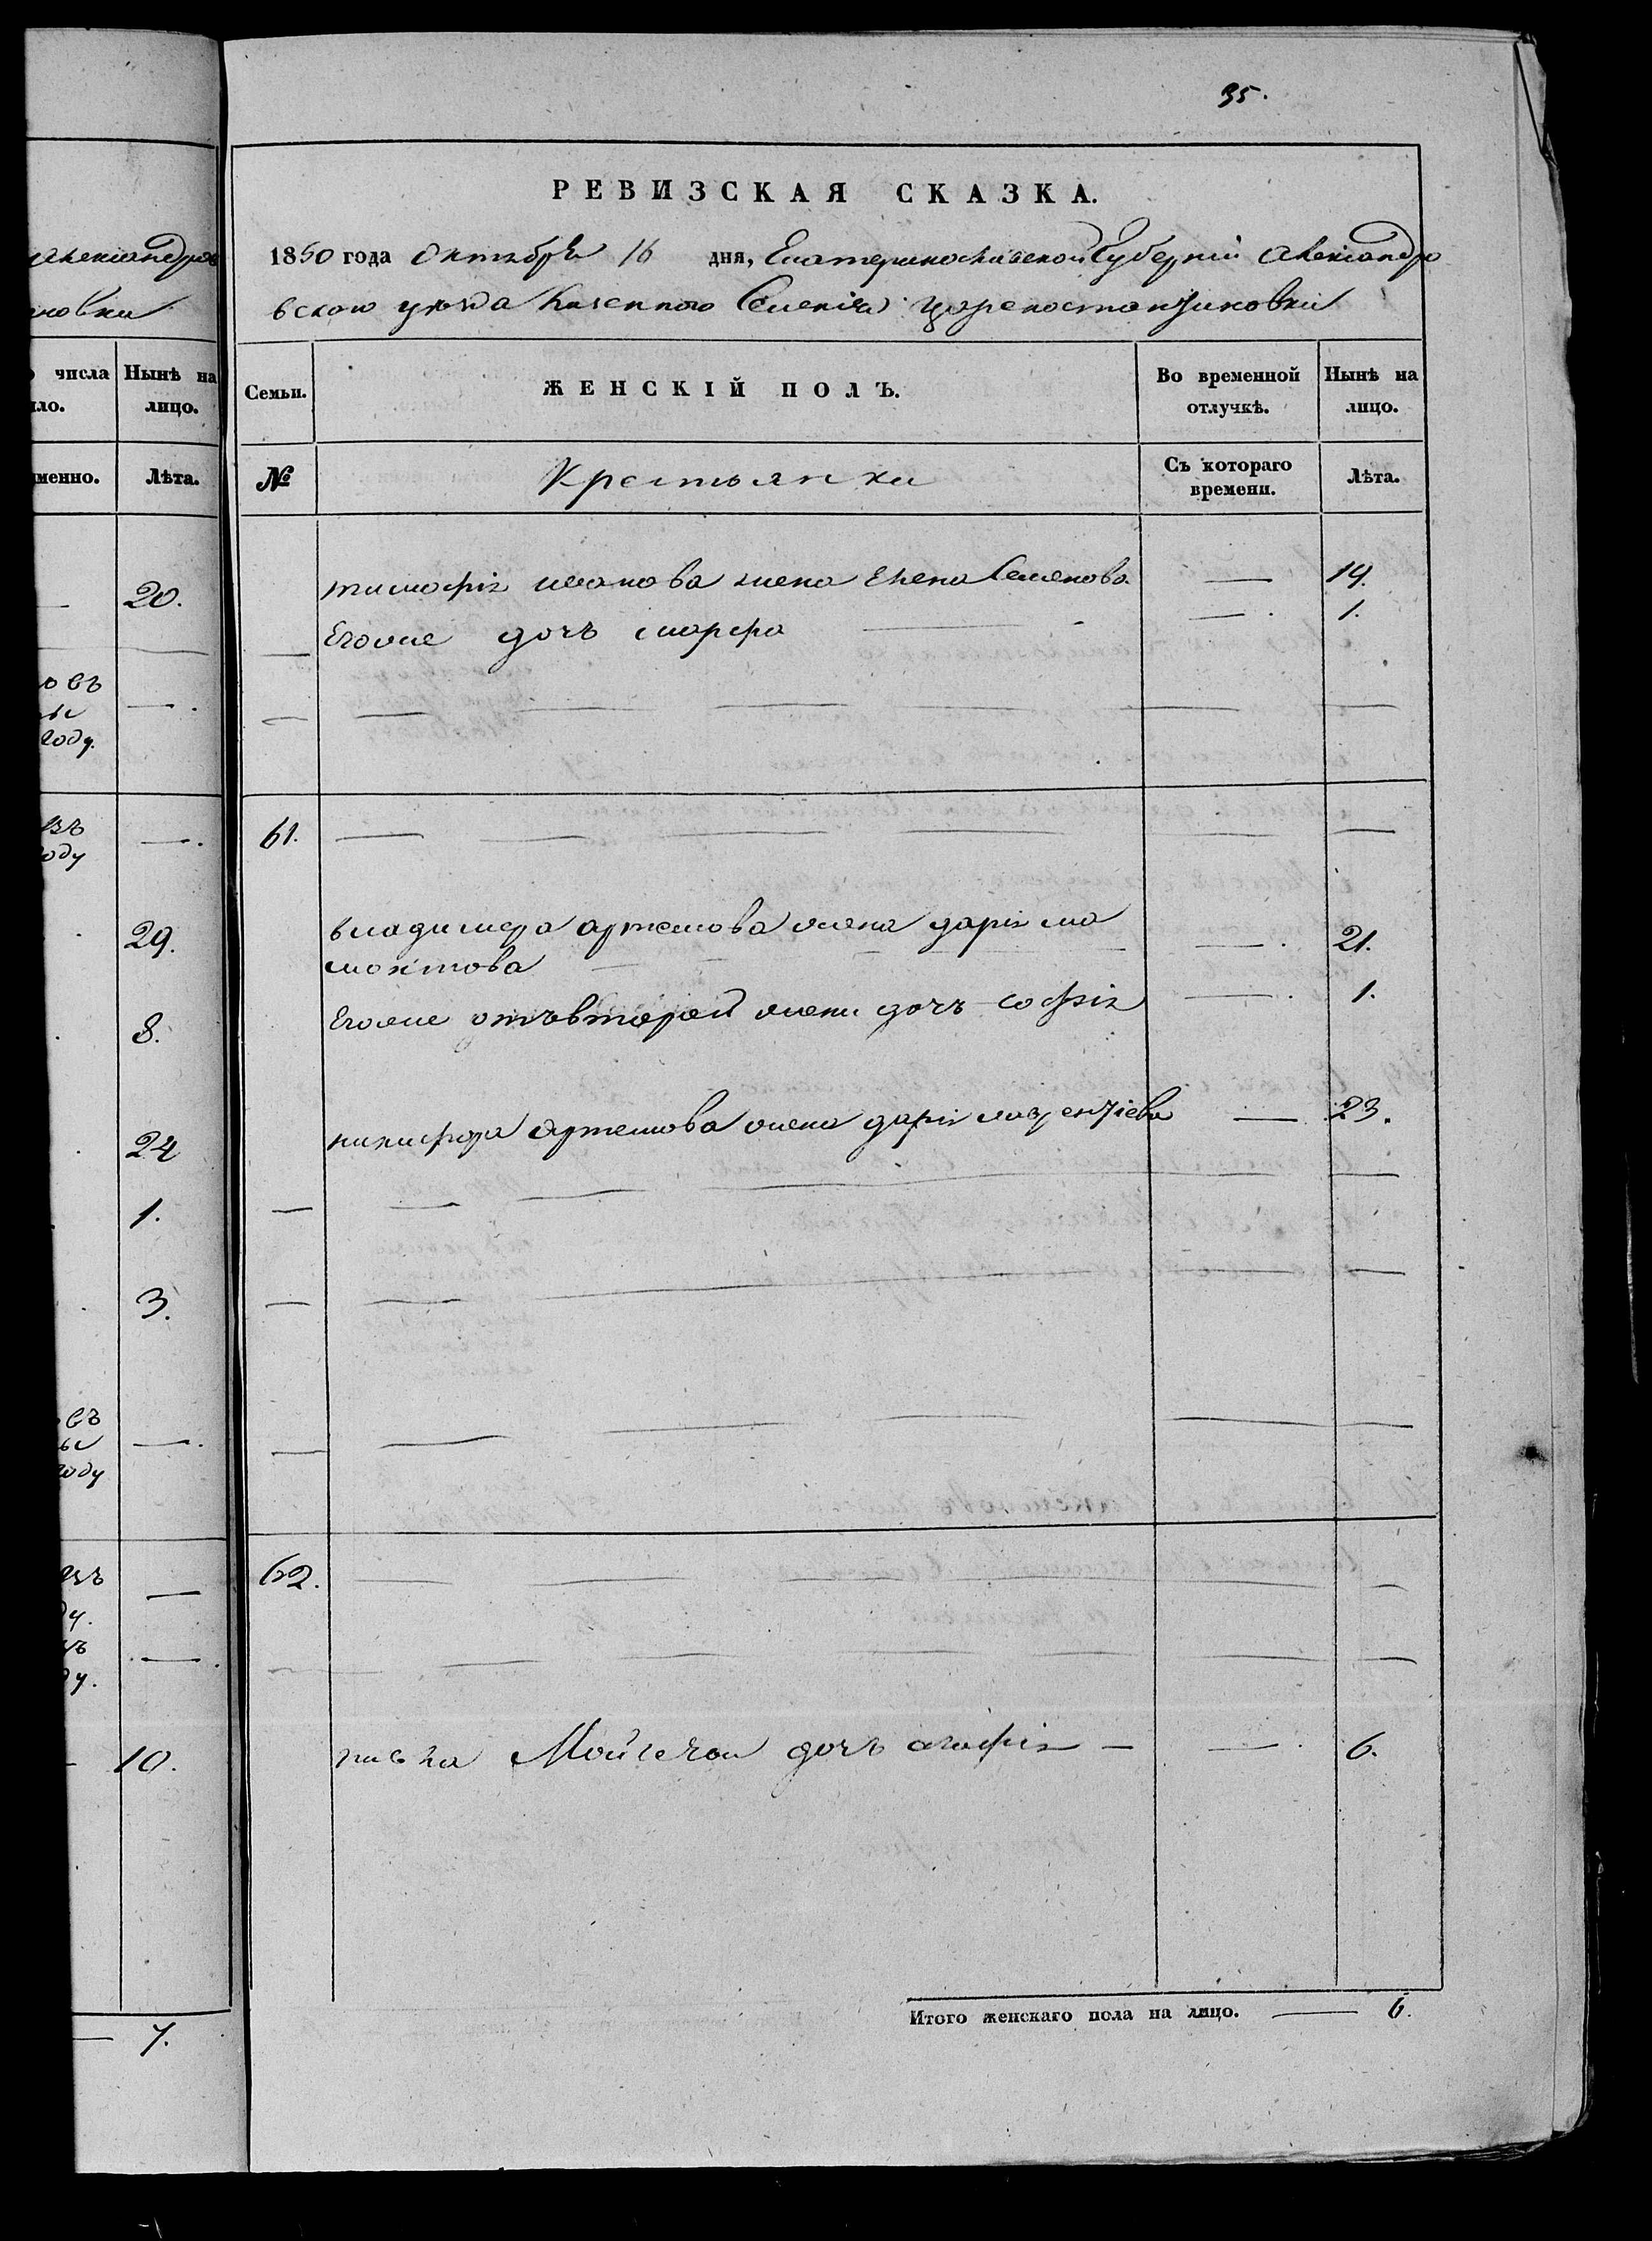 35.
РЕВИЗСКАЯ СКАЗКА.
1850 года Октября 16 дня, Екатеринославской Губерніи Александро
вскаго уезда Казенного Селенія Цареконстантиновки
Семьи.
ЖЕНСКІЙ ПОЛЪ.
Во временной отлучкѣ.
Нынѣ на лицо.
№
Крестьянки
Съ котораго времени.
Лѣта.
тимофія иванова жена Елена Семенова — 19.
Егоже дочь марфа — 1.
61.
владимера артемова жена дарія ма
монтова — 21.
Егоже отъ второй жены дочь софія — 1.
никифора Артемова жена дарія лаврентіева — 23.
62.
Мойсея дочь агафія — 6.
Итого женскаго пола на лицо. — 6.
числа
Нынѣ на лицо.
Лѣта.
20.
въ
году.
29.
8.
24
1.
3.
въ
году
10.
7.